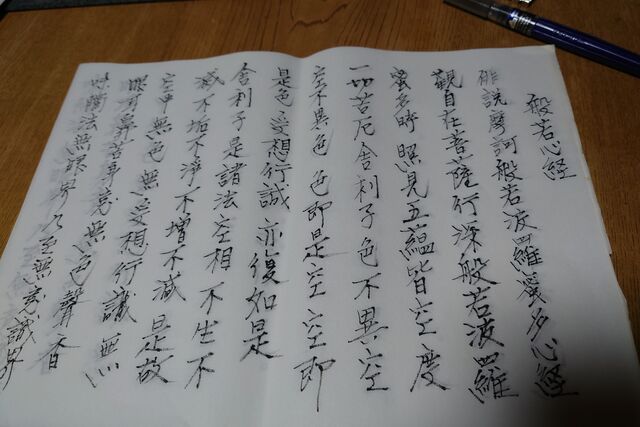 般若心経
佛説摩訶般若波羅蜜多心経
觀自在菩薩行深般若波羅
蜜多時照見五蘊皆空度
一切苦厄舎利子色不異空
空不異色色即是空空即
是色受想行誠亦復如是
舎利子是諸法空相不生不
滅不垢不浄不増不減是故
空中無色無受想行識無
眼耳鼻舌身意無色聲香
味觸法無眼界乃至無意識界